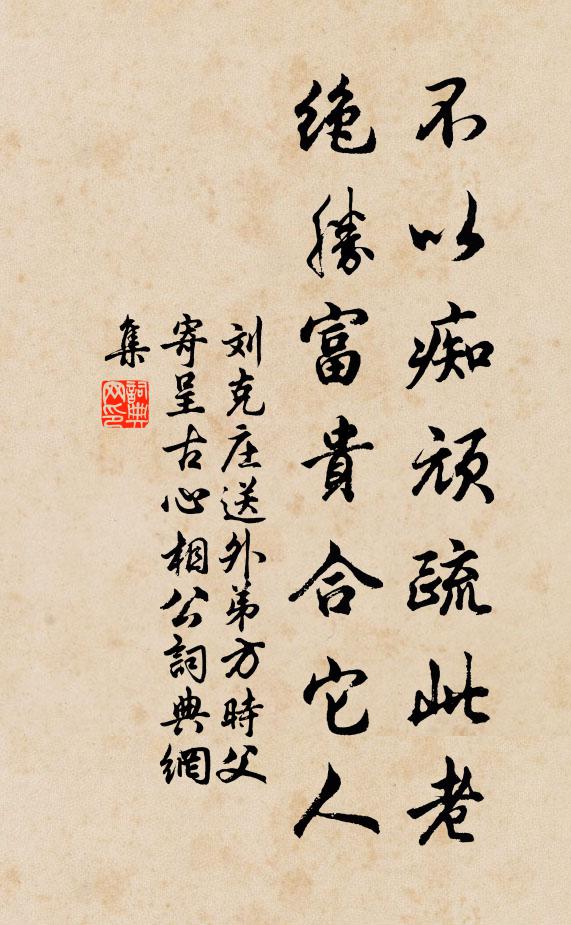 不以痴頑疏此老
絶勝富貴合它人
刘克庄送外弟方時父
寄呈古心相公詞典網
集
詞典网印